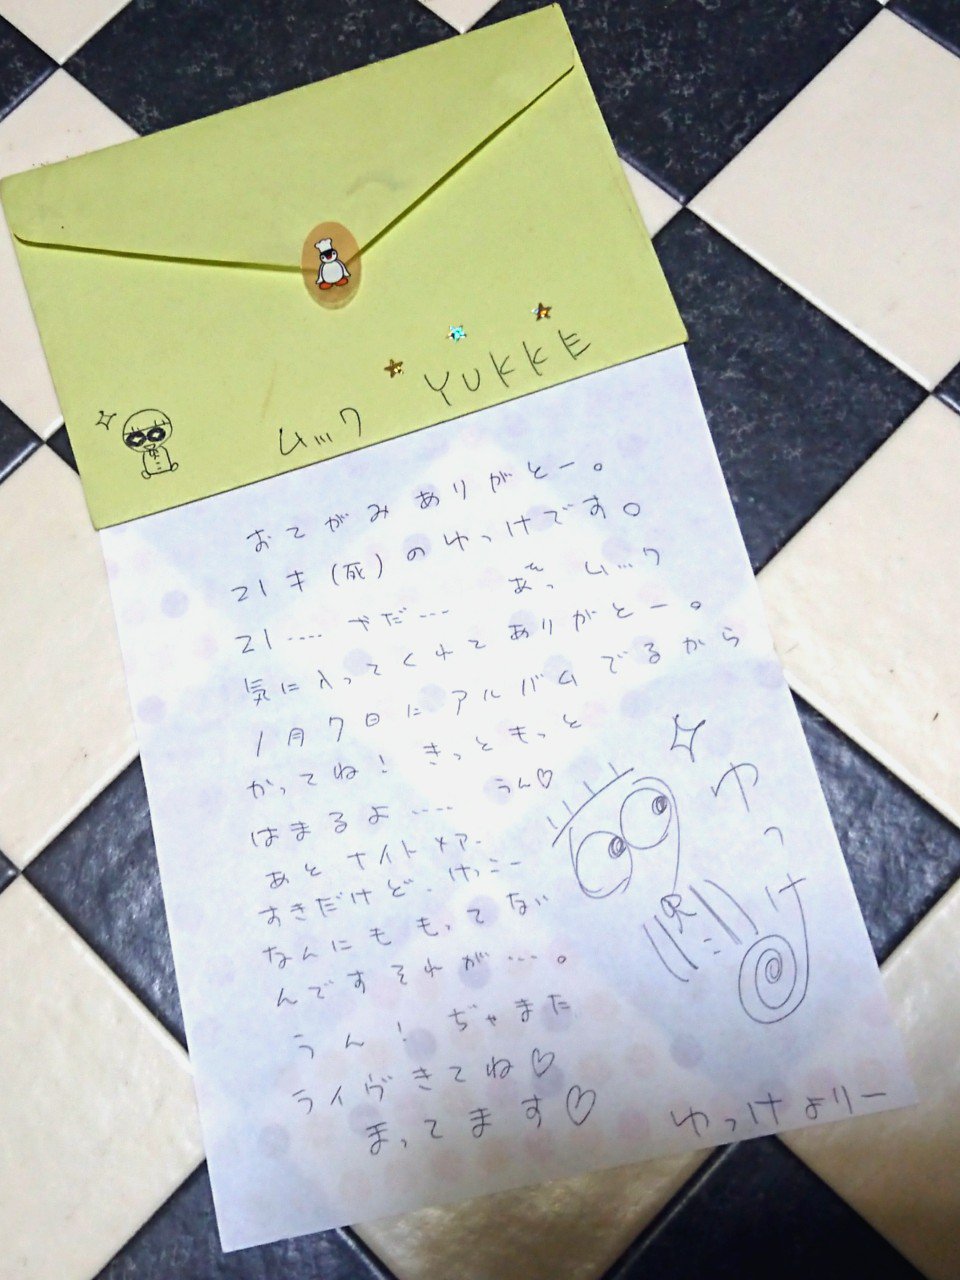 ムック YUKKE
おてがみありがとー。
21才(死)のゆっけです。
21.... やだ.... あっ ムック
気に入ってくれてありがとー。
1月7日にアルバムでるから
かってね! きっともっと
はまるよ.... うん♡
あと ナイトメア.
すきだけど.けっこー
なんにももってない
んですそれが...。
うん! ぢゃまた
ライヴきてね♡
まってます♡
ゆっけ
ゆっけよりー